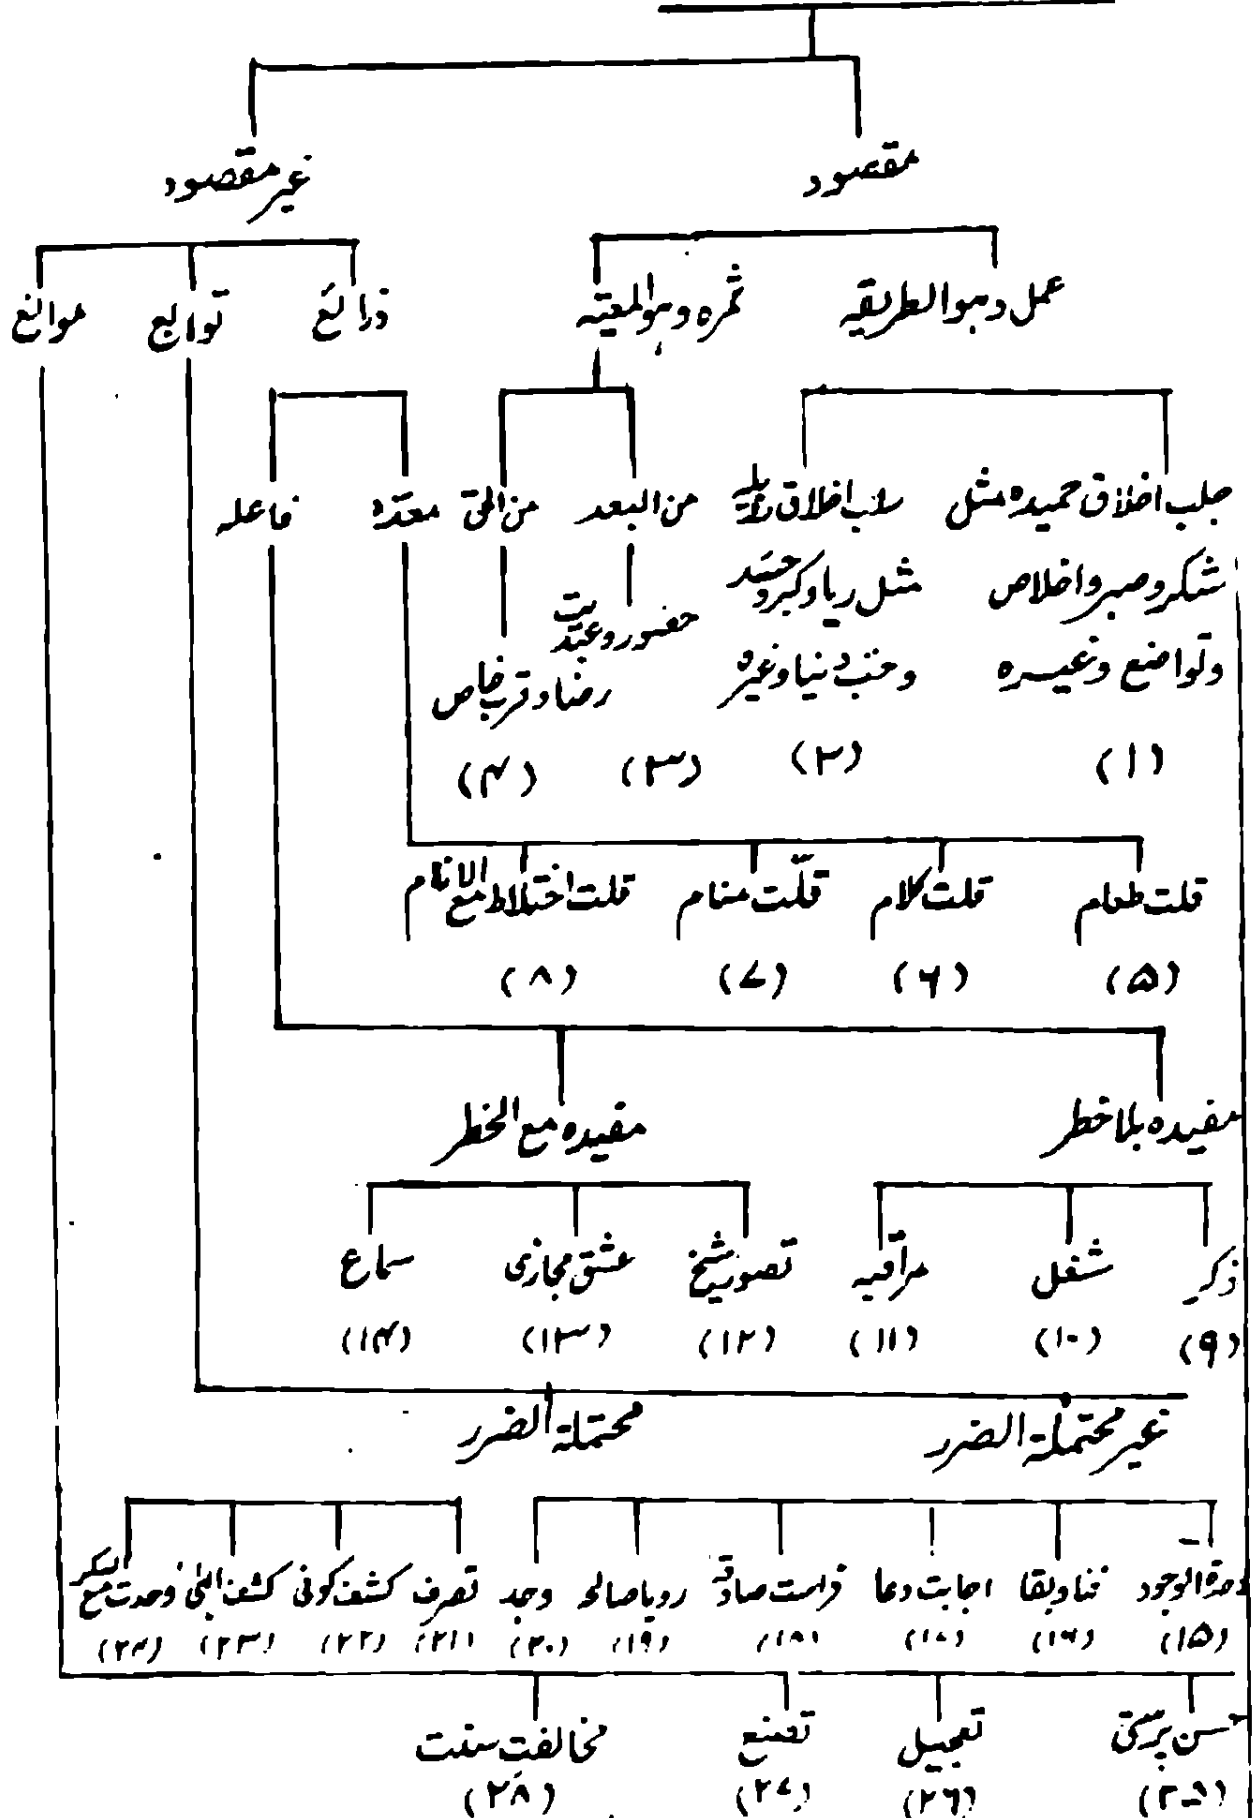 مقصود
غیر مقصود
عمل وہوالطریقہ
ثمرہ وہوالمعیتہ
ذرائع
توابع
موانع
جلب اخلاق حمیدہ مثل
شکر و صبر و اخلاص
و تواضع وغیرہ
(۱)
سلب اخلاق رذیلہ
مثل ریا و کبر و حسد
و حب دنیا وغیرہ
(۲)
من العبد
حضور و عبدیت
(۳)
من الحق
رضا و قرب خاص
(۴)
معدّہ
فاعلہ
قلت طعام
(۵)
قلت کلام
(۶)
قلّت منام
(۷)
قلت اختلاط مع الانام
(۸)
مفیدہ بلا خطر
مفیدہ مع الخطر
ذکر
(۹)
شغل
(۱۰)
مراقبہ
(۱۱)
تصور شیخ
(۱۲)
عشق مجازی
(۱۳)
سماع
(۱۴)
غیر محتملۃ الضرر
محتملۃ الضرر
وحدۃ الوجود
(۱۵)
فنا و بقا
(۱۶)
اجابت دعا
(۱۷)
فراست صادقہ
(۱۸)
رویا صالحہ
(۱۹)
وجد
(۲۰)
تصرف
(۲۱)
کشف کونی
(۲۲)
کشف الٰہی
(۲۳)
وحدت مع السکر
(۲۴)
حسن پرستی
(۲۵)
تعجیل
(۲۶)
تصنع
(۲۷)
مخالفتِ سنت
(۲۸)